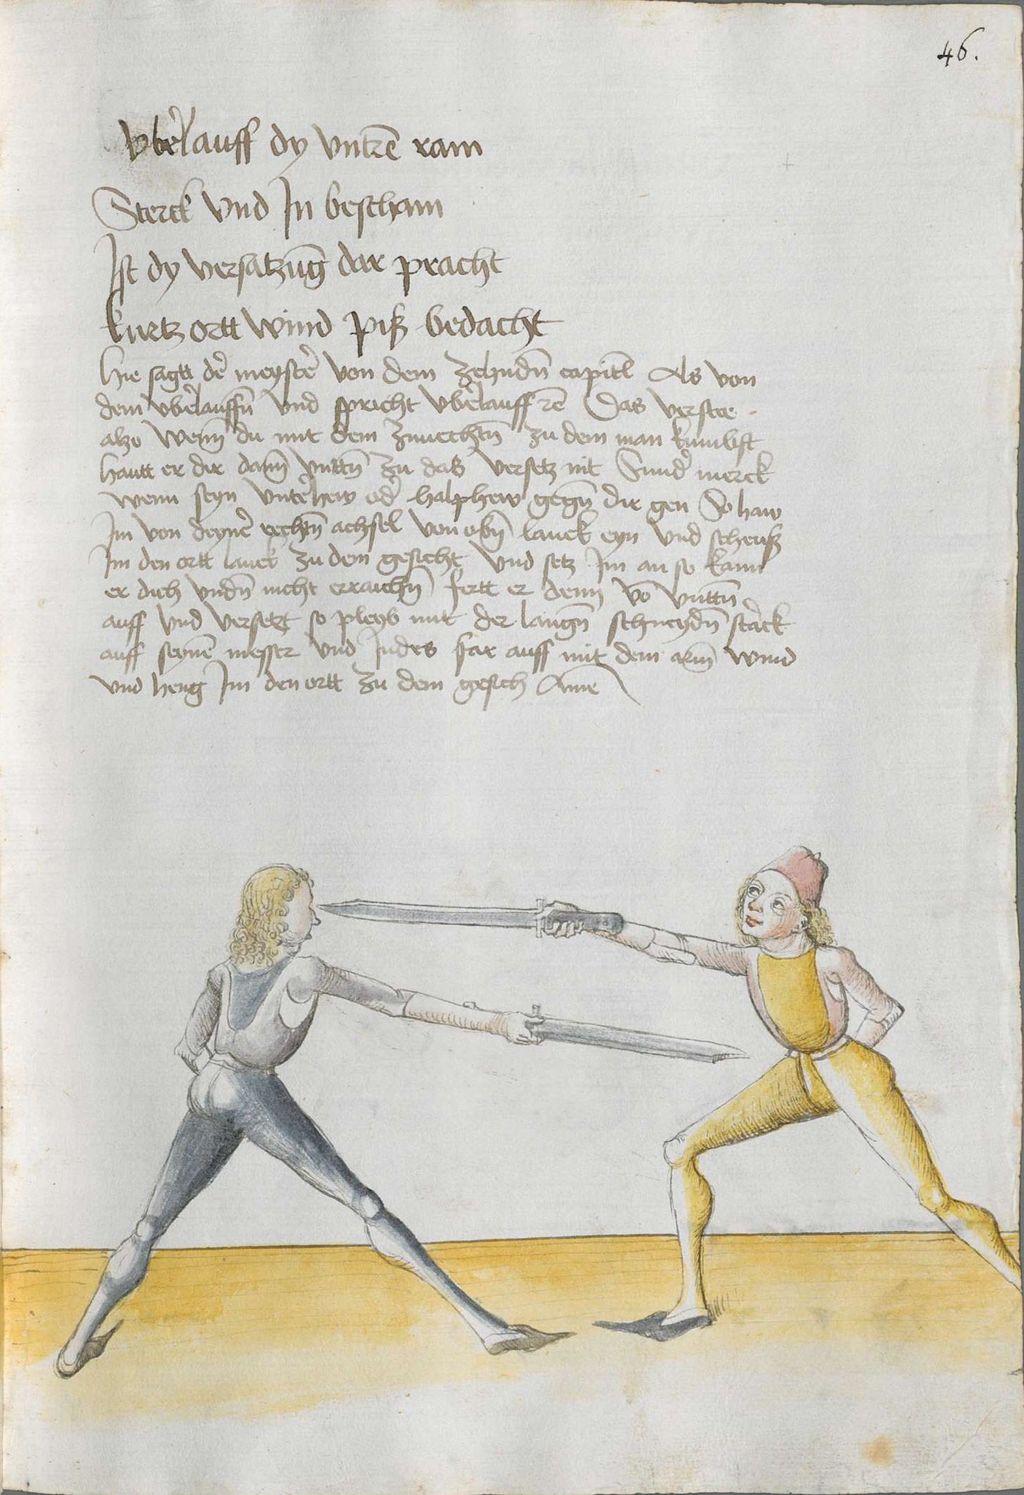 46.
Vberlauff dy vntrē ram
Sterck vnd In bescham
Ist dy versatzūg dar pracht
kurtz ortt wind piß bedacht
Hie sagtt dē meystē von dem zehndn̄ capitl Als von
dem vberlauffn̄ vnd spricht vberlauff rē Das verstee
also wenn̄ du mit dem zuuechtn̄ zu dem man kumbst
hautt er dir dann̄ vnttn̄ zu das versetz nit Sund̄ merck
wenn seyn vnterhew od̄ halphew gegn̄ dir gen So haw
Im von deynē rechtn̄ achsel von obn̄ lanck eyn vnd scheuß
Im den ortt lanck zu dem gesicht vnd setz Im an so kann
er dich vndn̄ nicht erraichn̄ fertt er denn vō vnttn̄
auff vnd versetzt so pleyb mit der langn̄ schneydn̄ starck
auff seynē messer vnd Indes far auff mit dem arm̄ wind
vnd heng Im den ortt zu dem gesich Ame